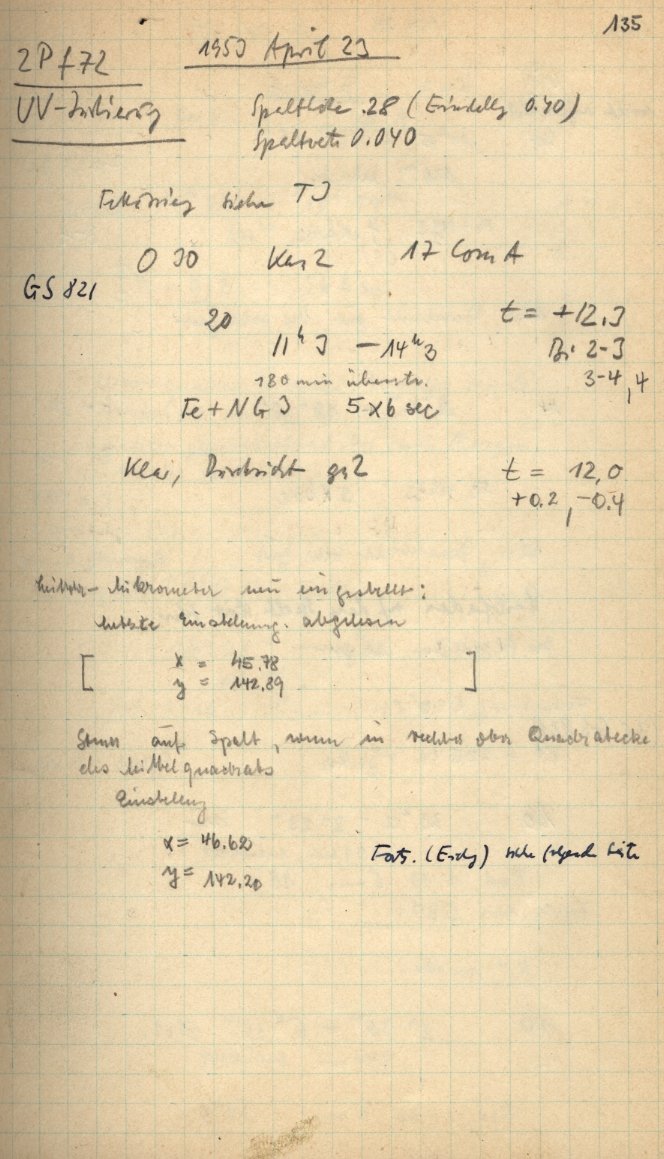 135
2Pf72 1953 April 23
UV-Justierung Spalthöhe .28 (Einstellg 0.40)
Spaltbreite 0.040
Fokussierung siehe TJ
O 30 Kas 2 17 Com A
GS 821
20 t = +12,3
11ʰ3 – 14ʰ3 Bi 2-3
180 min überstr. 3-4, 4
Fe + NG 3 5x6 sec
Klar, Durchsicht gs 2 t = 12,0
+0.2, -0.4
Mikrometer neu eingestellt:
letzte Einstellung abgelesen
[ x = 45.78
y = 142.89 ]
Stern auf Spalt, wenn in rechter ober Quadratecke
des Mittelquadrats
Einstellung
x = 46.62
y = 142.20
Forts. siehe folgende Seite